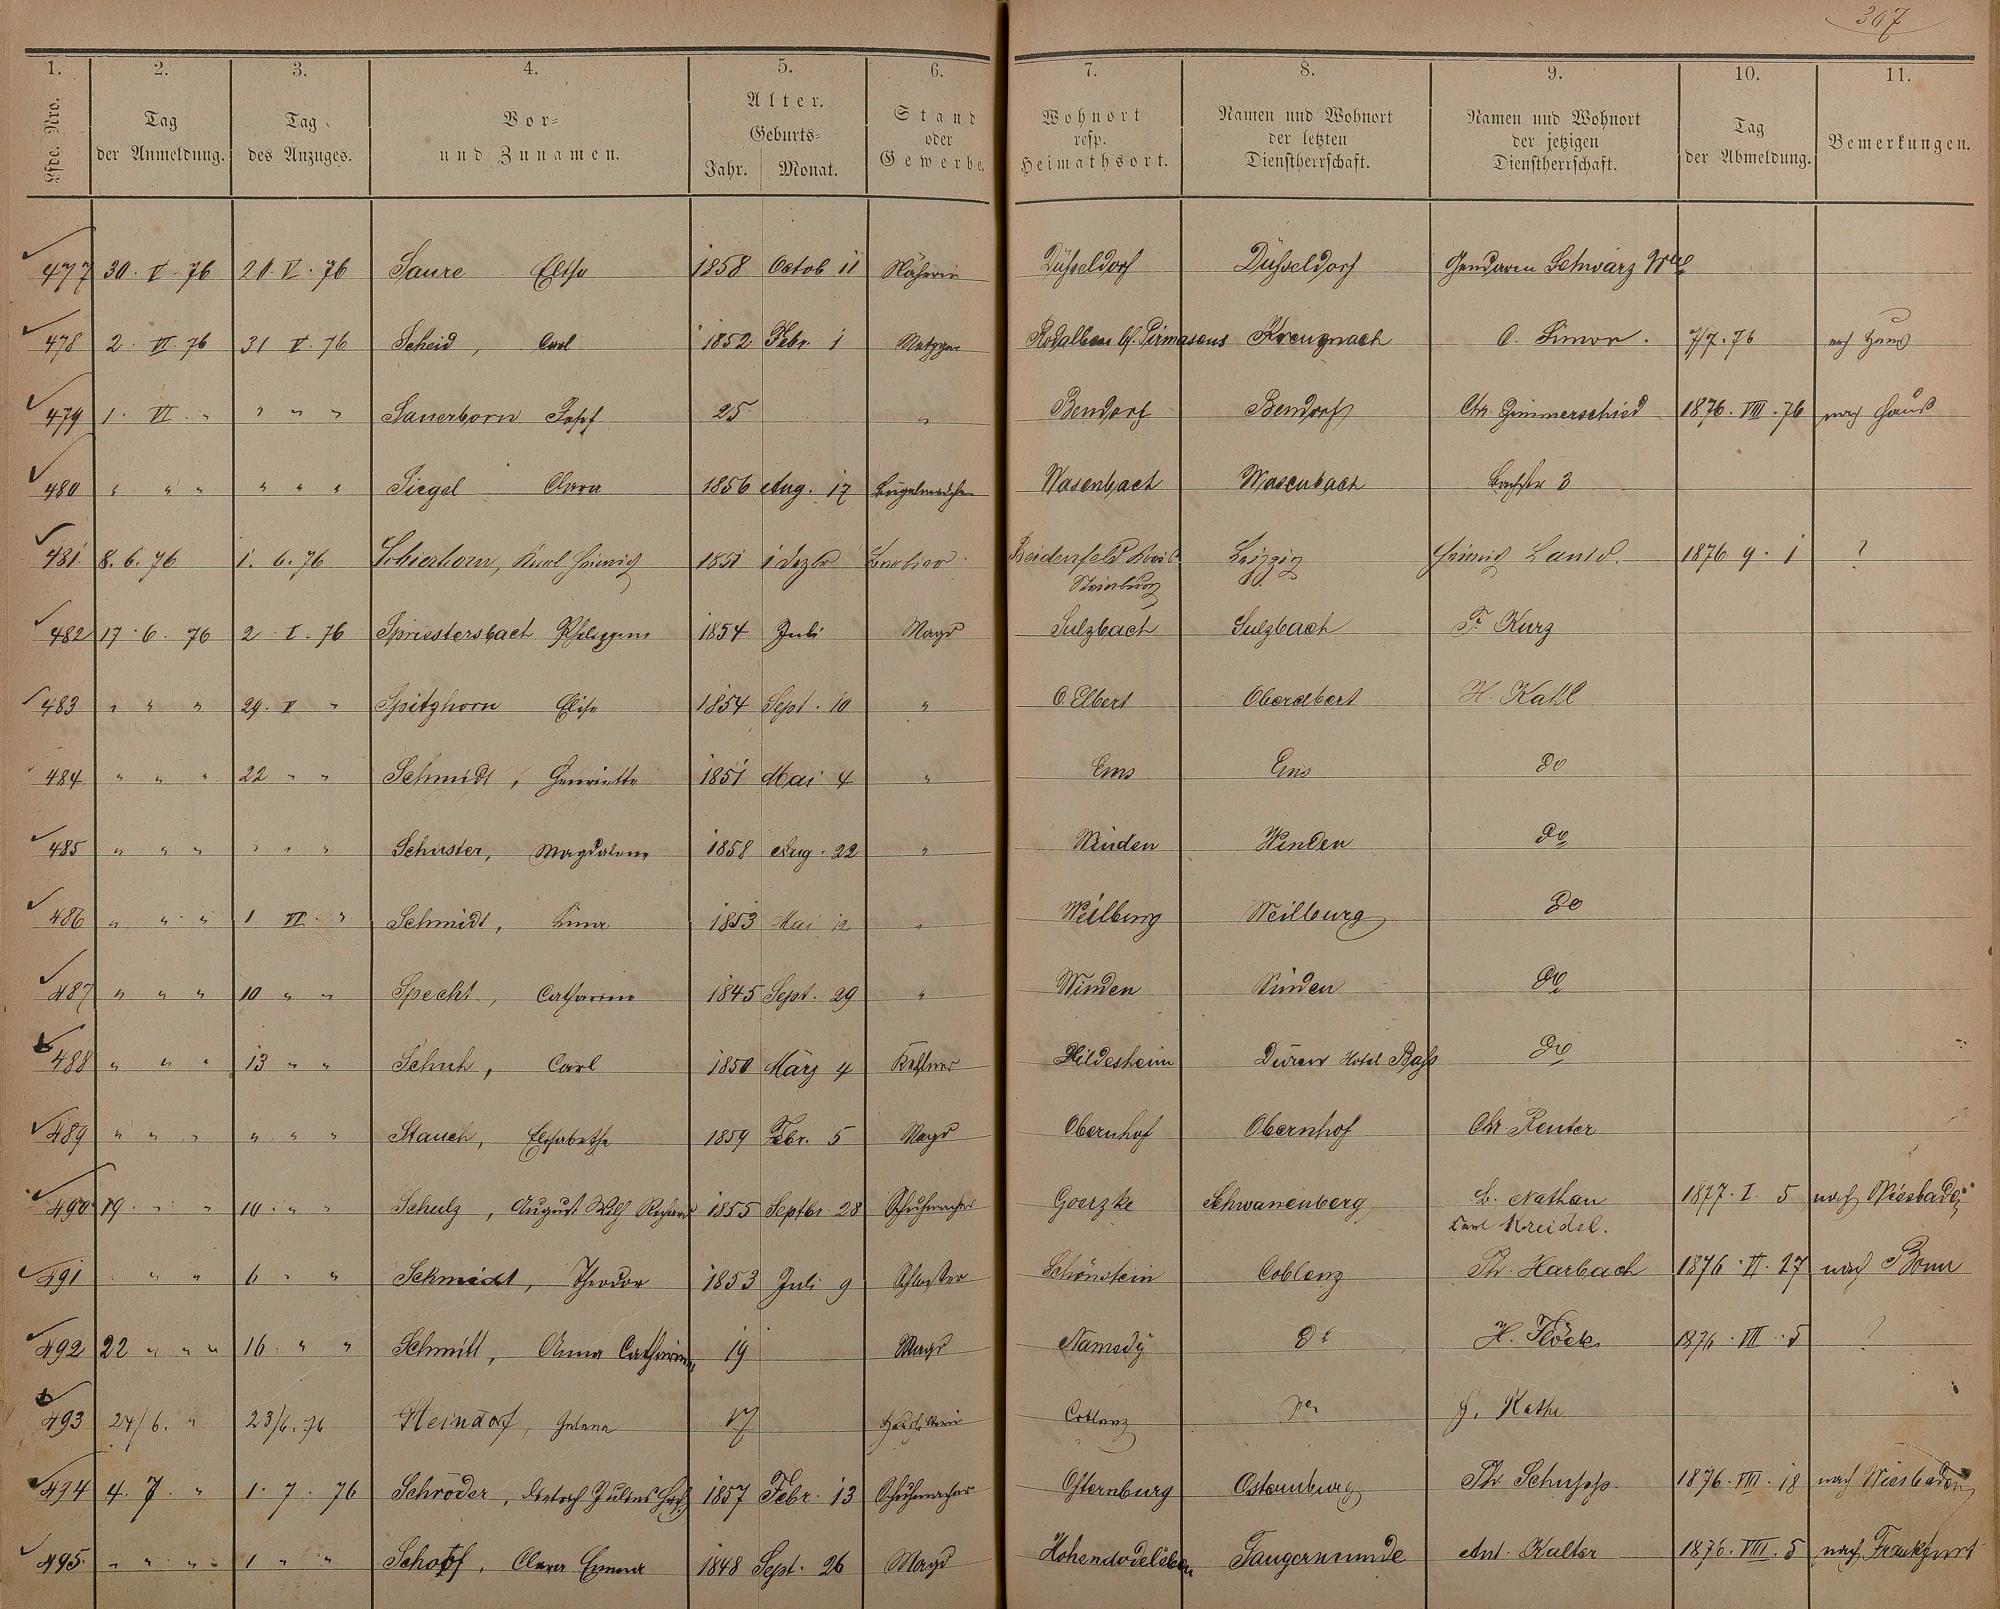 307
1. 2. 3. 4. 5. 6. 7. 8. 9. 10. 11.
Lfde. Nro. Tag der Anmeldung. Tag des Anzuges. Vor- und Zunamen. Alter. Geburts- Jahr. Monat. Stand oder Gewerbe. Wohnort resp. Heimathsort. Namen und Wohnort der letzten Dienstherrschaft. Namen und Wohnort der jetzigen Dienstherrschaft. Tag der Abmeldung. Bemerkungen.
477 30. V. 76 21. V. 76 Saure Elise 1858 Octob 11 Näherin Düsseldorf Düsseldorf Gendarm Schwarz Wwe
478 2. VI. 76 31 V. 76 Scheid, Carl 1852 Febr. 1 Metzger Rodalben b/ Pirmasens Kreuznach C. Simon. 7/7. 76 nach Haus
479 1. VI. " " " " Sauerborn Josef 25 " Bendorf Bendorf Chr. Zimmerschied 1876. VIII. 76 nach Haus
480 " " " " " " Siegel Clara 1856 Aug. 17 Bügelmädchen Wasenbach Wasenbach 3
481 8. 6. 76 1. 6. 76 Schierhorn, Karl Heinrich 1851 1 Dezbr Beidenfeld Kreis Leipzig Heinrich 1876 9. 1 ?
Steinburg
482 17. 6. 76 2 I. 76 Spriestersbach Philippine 1854 Juli Magd Sulzbach Sulzbach F. Kurz
483 " " " 29. V " Spitzhorn Elise 1854 Sept. 10 " O. Elbert Oberelbert H. Kahl
484 " " " 22 " " Schmidt, Henriette 1851 Mai 4 " Ems Ems do
485 " " " " " " Schuster, Magdalena 1858 Aug. 22 " Winden Winden do
486 " " " 1 VI. " Schmidt, Lina 1853 Mai 12 " Weilburg Weilburg do
487 " " " 10 " " Specht, Catharine 1845 Sept. 29 " Winden Winden do
488 " " " 13 " " Schuh, Carl 1850 März 4 Kellner Hildesheim Düren Hotel do
489 " " " " " " Stauch, Elisabethe 1859 Febr. 5 Magd Obernhof Obernhof Chr. Reuter
490 19. " " 10. " " Schulz, August Wilh Richard 1855 Septbr 28 Schuhmacher Goerzke Schwanenberg L. Nathan 1877. I. 5 nach Wiesbaden
Carl Kreidel.
491 " " " 6 " " Schmidt, Theodor 1853 Juli 9 Schlosser Schönstein Coblenz Ph. Harbach 1876. VI. 27 nach Bonn
492 22 " " " 16 " " Schmitt, Anna Catharina 19 Magd Namedy do H. Flöck 1876. VII. 5 ?
493 24/6. " 23/6. 76 Steindorf, Helena 17 Coblenz Kathe
494 4. 7. " 1. 7. 76 Schröder, Julius 1857 Febr. 13 Schuhmacher Osternburg Osternburg Ph. Schupp. 1876. VIII. 18 nach Wiesbaden
495. " " " " 1 " " Schopf, Clara Emma 1848 Sept. 26 Magd Hohendodeleben Tangermünde Ant. Kalter 1876. VIII. 5 nach Frankfurt